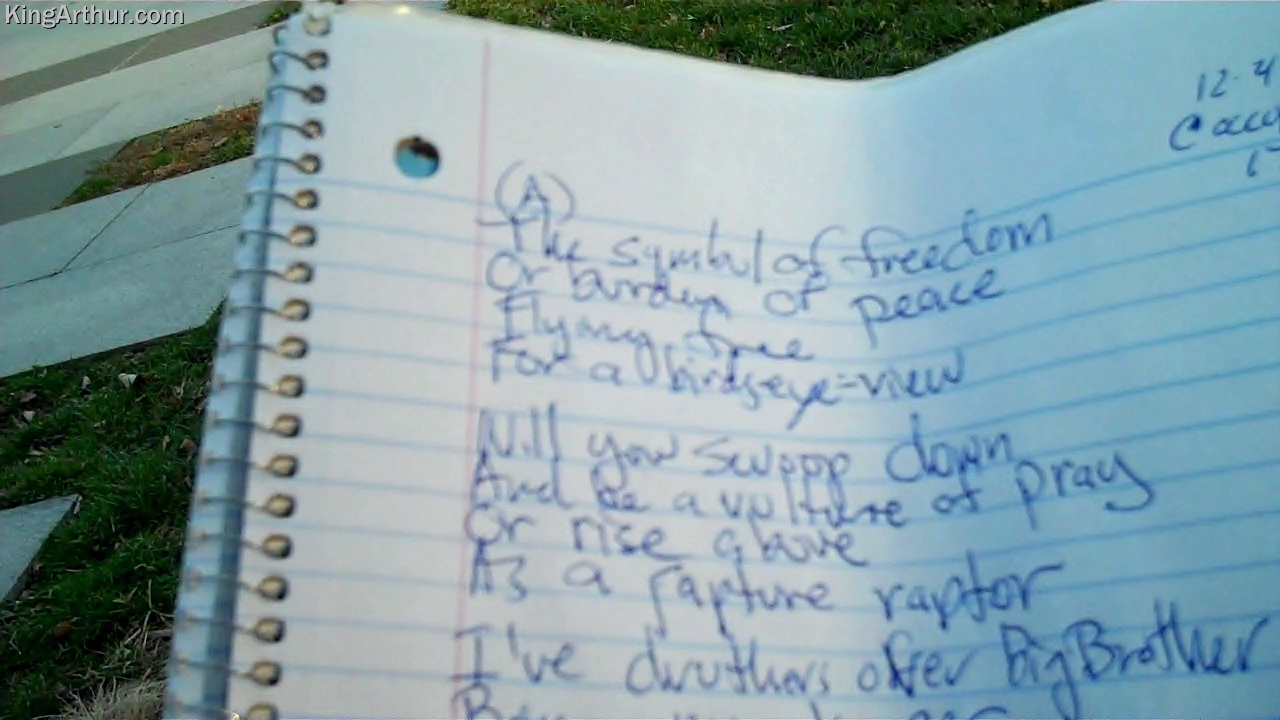 KingArthur.com
12-4
(A)
The symbol of freedom
Or burden of peace
Flying free
For a birdseye-view
Will you swoop down
And be a vulture of pray
Or rise above
As a rapture raptor
I've druthers offer Big Brother